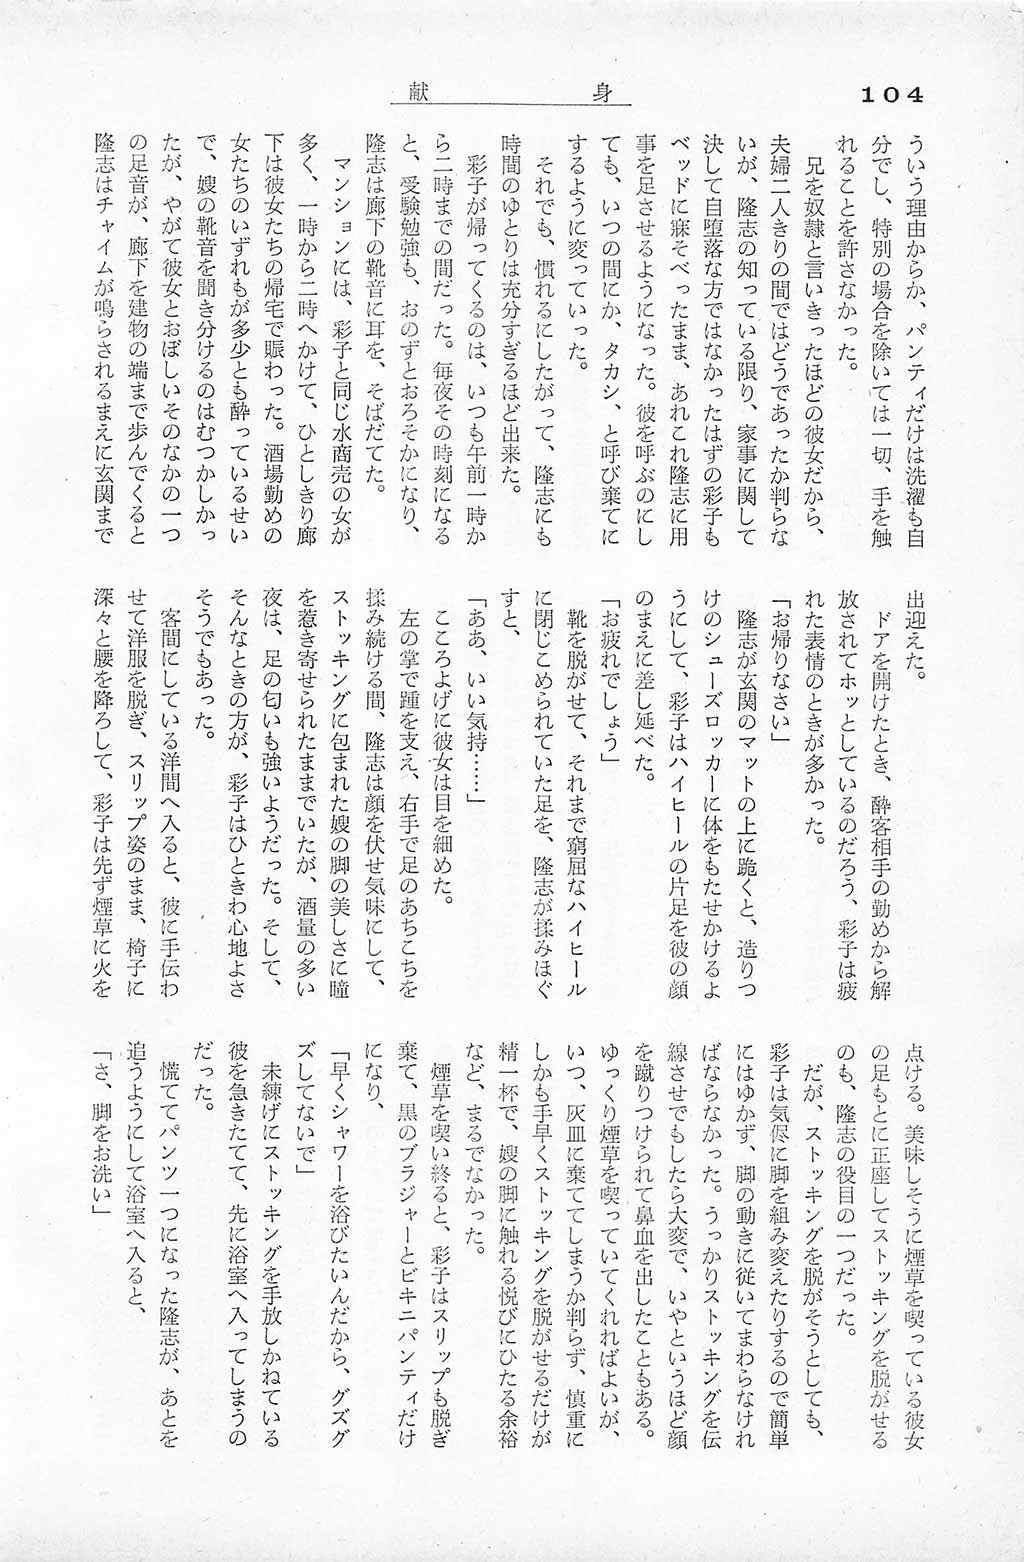 104
献身
ういう理由からか、パンティだけは洗濯も自
分でし、特別の場合を除いては一切、手を触
れることを許さなかった。
兄を奴隷と言いきったほどの彼女だから、
夫婦二人きりの間ではどうであったか判らな
いが、隆志の知っている限り、家事に関して
決して自堕落な方ではなかったはずの彩子も
ベッドに寐そべったまま、あれこれ隆志に用
事を足させるようになった。彼を呼ぶのにし
ても、いつの間にか、タカシ、と呼び棄てに
するように変っていった。
それでも、慣れるにしたがって、隆志にも
時間のゆとりは充分すぎるほど出来た。
彩子が帰ってくるのは、いつも午前一時か
ら二時までの間だった。毎夜その時刻になる
と、受験勉強も、おのずとおろそかになり、
隆志は廊下の靴音に耳を、そばだてた。
マンションには、彩子と同じ水商売の女が
多く、一時から二時へかけて、ひとしきり廊
下は彼女たちの帰宅で賑わった。酒場勤めの
女たちのいずれもが多少とも酔っているせい
で、嫂の靴音を聞き分けるのはむつかしかっ
たが、やがて彼女とおぼしいそのなかの一つ
の足音が、廊下を建物の端まで歩んでくると
隆志はチャイムが鳴らされるまえに玄関まで
出迎えた。
ドアを開けたとき、酔客相手の勤めから解
放されてホッとしているのだろう、彩子は疲
れた表情のときが多かった。
「お帰りなさい」
隆志が玄関のマットの上に跪くと、造りつ
けのシューズロッカーに体をもたせかけるよ
うにして、彩子はハイヒールの片足を彼の顔
のまえに差し延べた。
「お疲れでしょう」
靴を脱がせて、それまで窮屈なハイヒール
に閉じこめられていた足を、隆志が揉みほぐ
すと、
「ああ、いい気持……」
こころよげに彼女は目を細めた。
左の掌で踵を支え、右手で足のあちこちを
揉み続ける間、隆志は顔を伏せ気味にして、
ストッキングに包まれた嫂の脚の美しさに瞳
を惹き寄せられたままでいたが、酒量の多い
夜は、足の匂いも強いようだった。そして、
そんなときの方が、彩子はひときわ心地よさ
そうでもあった。
客間にしている洋間へ入ると、彼に手伝わ
せて洋服を脱ぎ、スリップ姿のまま、椅子に
深々と腰を降ろして、彩子は先ず煙草に火を
点ける。美味しそうに煙草を喫っている彼女
の足もとに正座してストッキングを脱がせる
のも、隆志の役目の一つだった。
だが、ストッキングを脱がそうとしても、
彩子は気侭に脚を組み変えたりするので簡単
にはゆかず、脚の動きに従いてまわらなけれ
ばならなかった。うっかりストッキングを伝
線させでもしたら大変で、いやというほど顔
を蹴りつけられて鼻血を出したこともある。
ゆっくり煙草を喫っていてくれればよいが、
いつ、灰皿に棄ててしまうか判らず、慎重に
しかも手早くストッキングを脱がせるだけが
精一杯で、嫂の脚に触れる悦びにひたる余裕
など、まるでなかった。
煙草を喫い終ると、彩子はスリップも脱ぎ
棄て、黒のブラジャーとビキニパンティだけ
になり、
「早くシャワーを浴びたいんだから、グズグ
ズしてないで」
未練げにストッキングを手放しかねている
彼を急きたてて、先に浴室へ入ってしまうの
だった。
慌ててパンツ一つになった隆志が、あとを
追うようにして浴室へ入ると、
「さ、脚をお洗い」